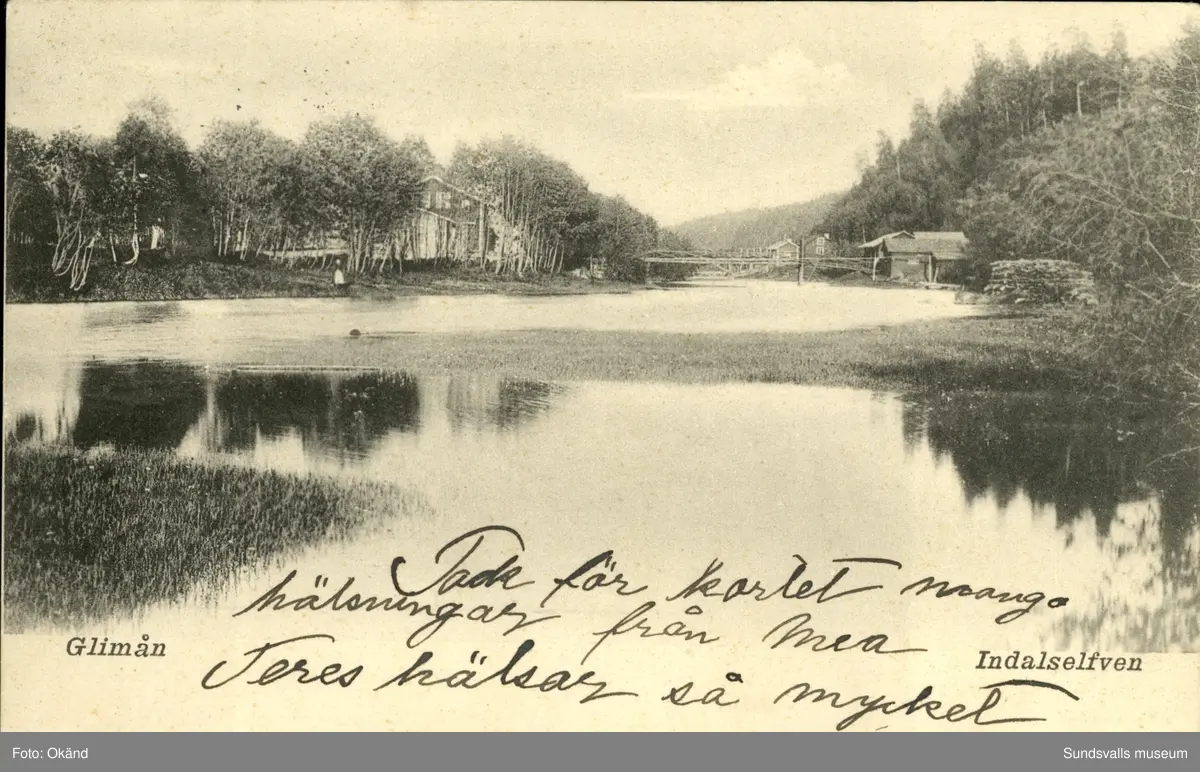 Tack för kortet många
hälsningar från Mea
Glimån
Indalselfven
Teres hälsar så mycket
Foto: Okänd
Sundsvalls museum